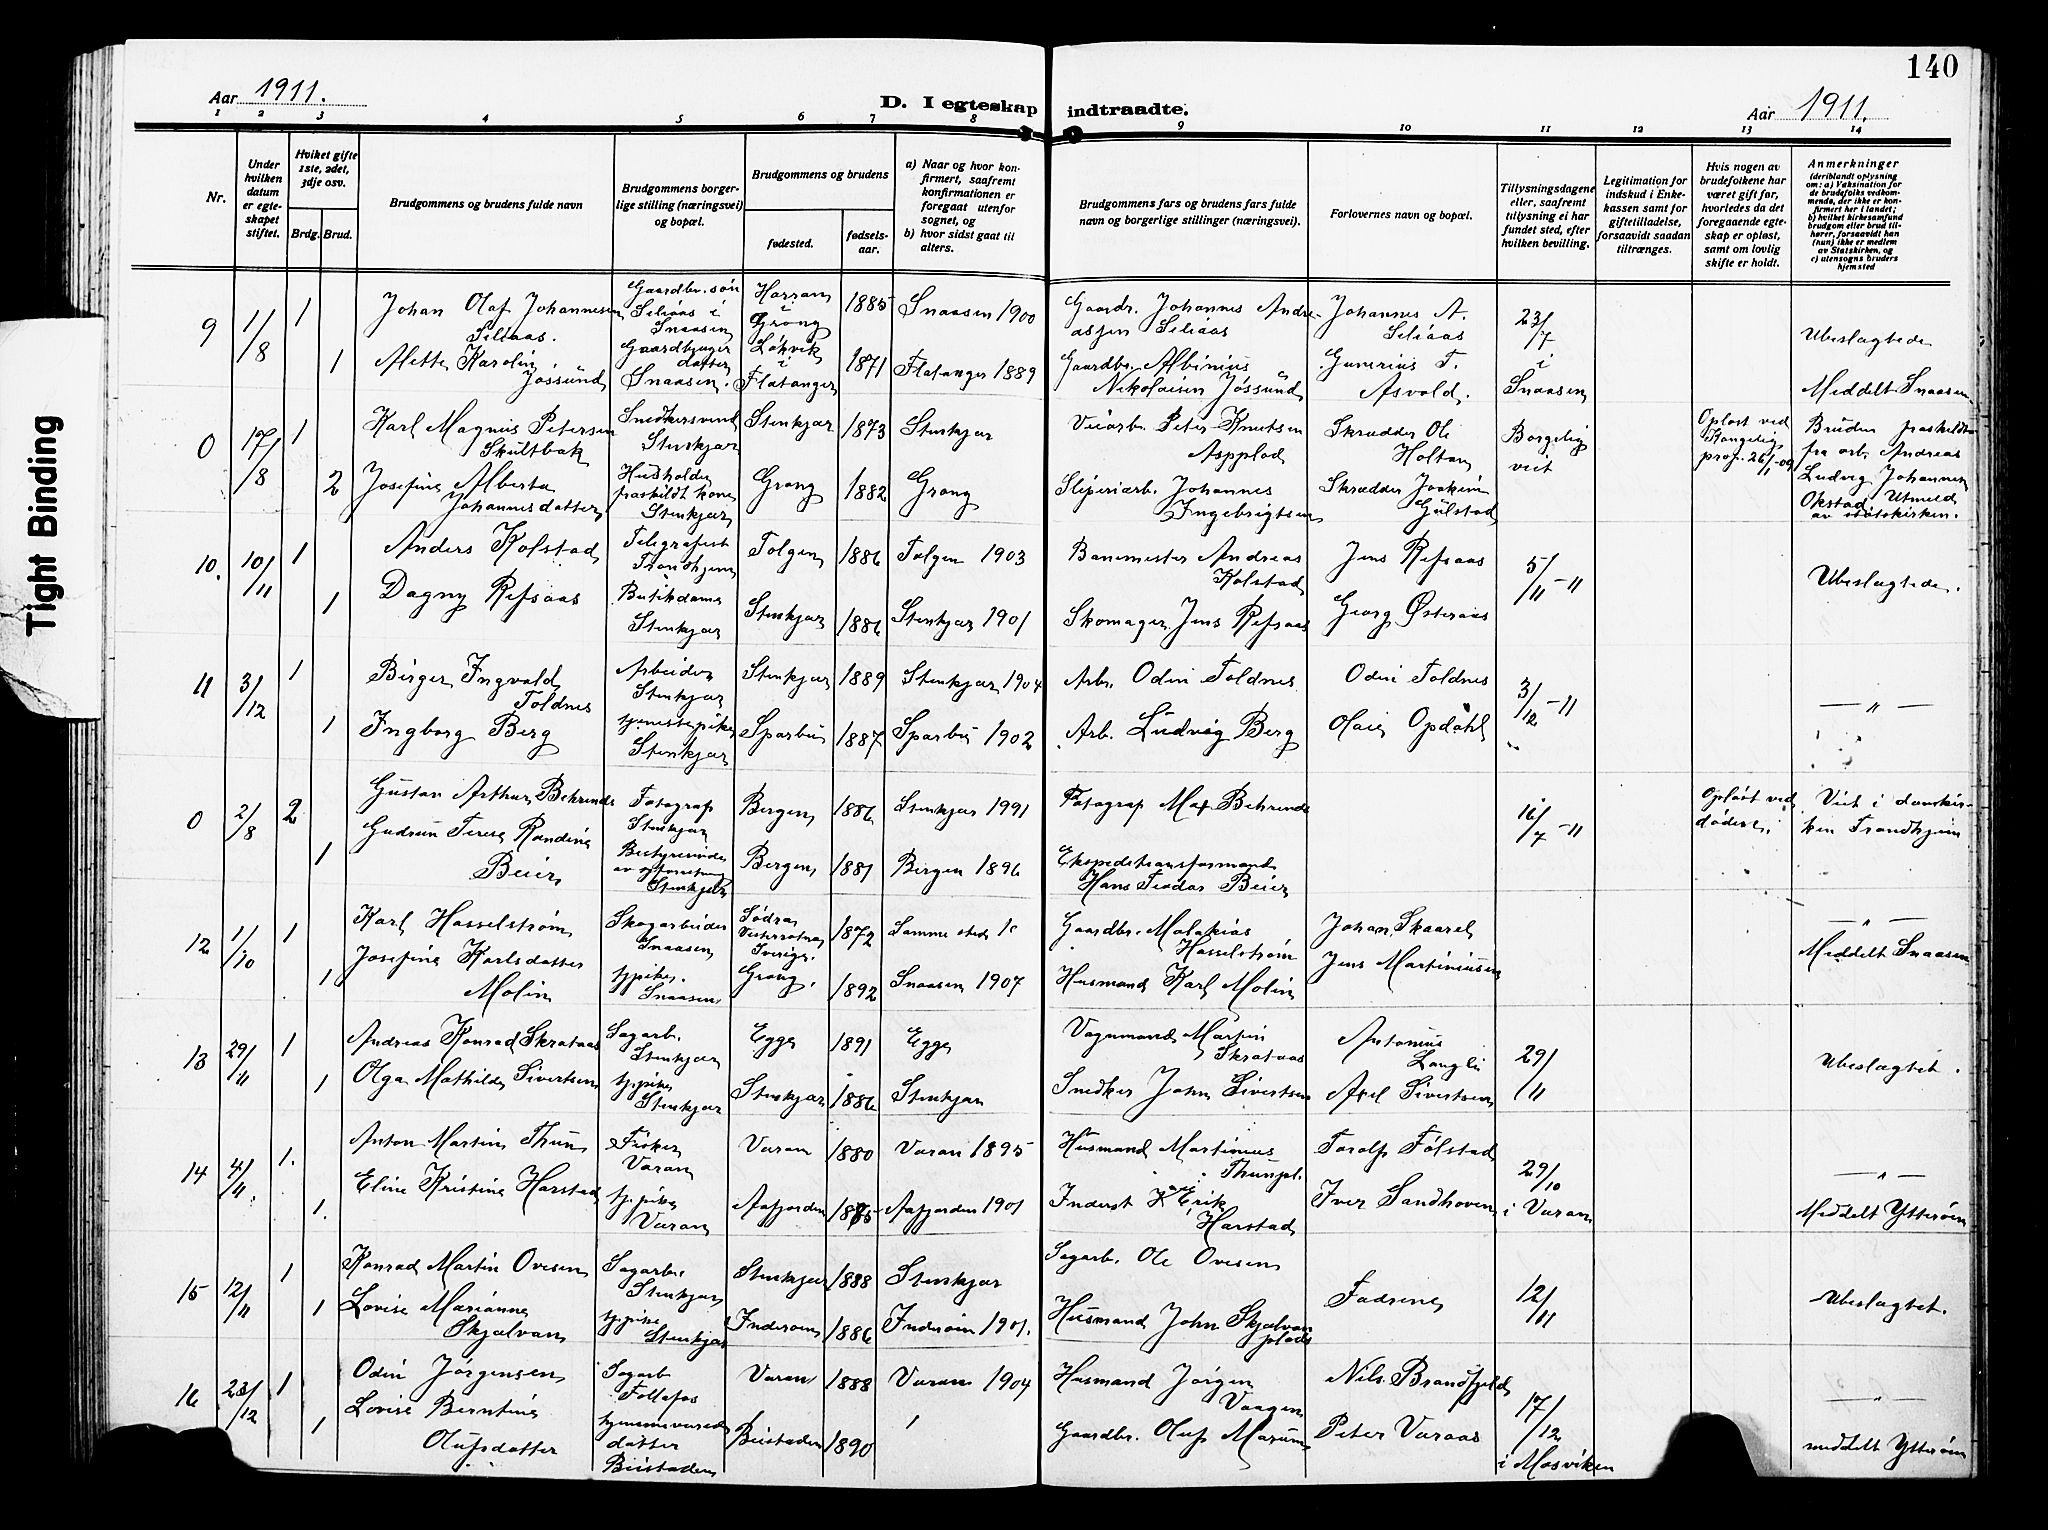 140
Aar 1911.
D. I egteskap indtraadte.
Aar 1911.
1 2 3 4 5 6 7 8 9 10 11 12 13 14
Nr.
Under hvilken datum er egteskapet stiftet.
Hvilket gifte 1ste, 2det, 3dje osv.
Brdg. Brud.
Brudgommens og brudens fulde navn
Brudgommens borgerlige stilling (næringsvei) og bopæl.
Brudgommens og brudens
fødested.
fødselsaar.
a) Naar og hvor konfirmert, saafremt konfirmationen er foregaat utenfor sognet, og
b) hvor sidst gaat til alters.
Brudgommens fars og brudens fars fulde navn og borgerlige stillinger (næringsvei).
Forlovernes navn og bopæl.
Tillysningsdagene eller, saafremt tillysning ei har fundet sted, efter hvilken bevilling.
Legitimation for indskud i Enkekassen samt for giftetilladelse, forsaavidt saadan tiltrænges.
Hvis nogen av brudefolkene har været gift før, hvorledes da det foregaaende egteskap er opløst, samt om lovlig skifte er holdt.
Anmerkninger
(deriblandt oplysning om: a) Vaksination for de brudefolks vedkommende, der ikke er konfirmert her i landet; b) hvilket kirkesamfund brudgom eller brud tilhører, forsaavidt han (hun) ikke er medlem av Statskirken, og c) utensogns bruders hjemsted
9 1/8 1 Johan Olaf Johannesen Seliaas. Gaardbr. søn Seliaas i Snaasen Harran i Grong 1885 Snaasen 1900 Gaardbr. Johannes Andreassen Seliaas Johannes A. Seliaas 23/7 i Snaasen Ubeslagtede
1 Alette Karolin Jøssund Gaardbruger datter Snaasen. Løkvik i Flatanger 1871 Flatanger 1889 Gaardbr. Albinius Nikolaisen Jøssund Gunerius T. Asvold. Meddelt Snaasen
0 17/8 1 Karl Magnus Petersen Skultbak Snedkersvend Stenkjær Stenkjær 1873 Stenkjær Peter Knutsen Aspplad Skrædder Ole Holtan Borgelig viet Opløst ved Kongelig Bruden fraskildt fra arb. Andreas Ludvig Johannes Okstad Utmeld av statskirken.
2 Josefine Alberta Johannesdatter Husholder fraskildt kone Stenkjær Grong 1882 Grong Sliperiarb. Johannes Ingebrigtsen Skrædder Joakim Gülstad
10. 10/11 1 Anders Kolstad Telegrafist Trondhjem Tolgen 1886 Tolgen 1903 Banemester Andreas Kolstad Jens Refsaas 5/11 - 11 Ubeslagtede.
1 Dagny Refsaas Butikdame Stenkjær Stenkjær 1886 Stenkjær 1901 Skomager Jens Refsaas Georg Østeraas
11 3/12 1 Birger Ingvald Toldnes Arbeider Stenkjær Stenkjær 1889 Stenkjær 1904 Arb. Odin Toldnes. Odin Toldnes 3/12 - 11 — " —
1 Ingborg Berg tjenestepike Stenkjær Sparbu 1887 Sparbu 1902 Arb. Ludvig Berg Olai Opdahl
0 2/8 2 Gustav Arthur Behrends Fotograf Stenkjær Bergen 1886 Stenkjær 1991 Fotograf Max Behrends 16/7 - 11 Opløst ved døden. Viet i domkirken Trondhjem
1 Gudrun Terese Randine Beier Bestyrerinde av Stenkjær Bergen 1881 Bergen 1896 Hans Teodor Beier
12 1/10 1 Karl Hasselstrøm Skogarbeider Snaasen Södra Sverige. 1872 Samme sted Gaardbr. Malakias Hasselstrøm Johan Skaarel — " —
1 Josefine Karlsdatter Molin tj.pike. Snaasen Grong. 1892 Snaasen 1907 Husmand Karl Molin Jens Martinussen Meddelt Snaasen
13 29/11 1 Andreas Konrad Skrataas Sagarb. Stenkjær Egge 1891 Egge Vognmand Martin Skrataas Antonius Langli 29/11 Ubeslægtet.
1 Olga Mathilde Sivertsen tj.pike Stenkjær Stenkjær 1886 Stenkjær Snedker John Sivertsen Axel Sivertsen
14 4/11. 1. Anton Martin Thun Fisker Varan Varan 1880 Varan 1895 Husmand Martinius Thunpl. Torolf Følstad 29/10 i Varan — " —
1. Eline Kristine Harstad tj.pike Varan Aafjorden Aafjorden 1901 Inderst Erik Harstad Iver Sandhoven Meddelt Ytterøen
15 12/11 1 Konrad Martin Ovesen Sagarb. Stenkjær Stenkjær 1888 Stenkjær Sagarb. Ole Ovesen Fædrene 12/11 Ubeslægtet.
1 Lovise Marianne Skjælvan tj.pike Stenkjær Inderøen 1886 Inderøen 1901. Husmand John Skjælvan plads
16 23/12 1 Odin Jørgensen Sagarb Follafos Varan 1888 Varan 1904 Husmand Jørgen Vaagen Nils Brandfjeld 17/12 i Mosviken — " —
1 Lovise Berntine Olufsdatter hjemmeværende datter Beitstaden Beitstaden 1890 Gaardbr. Oluf Marum Peter Varaas meddelt Ytterøen
Tight Binding